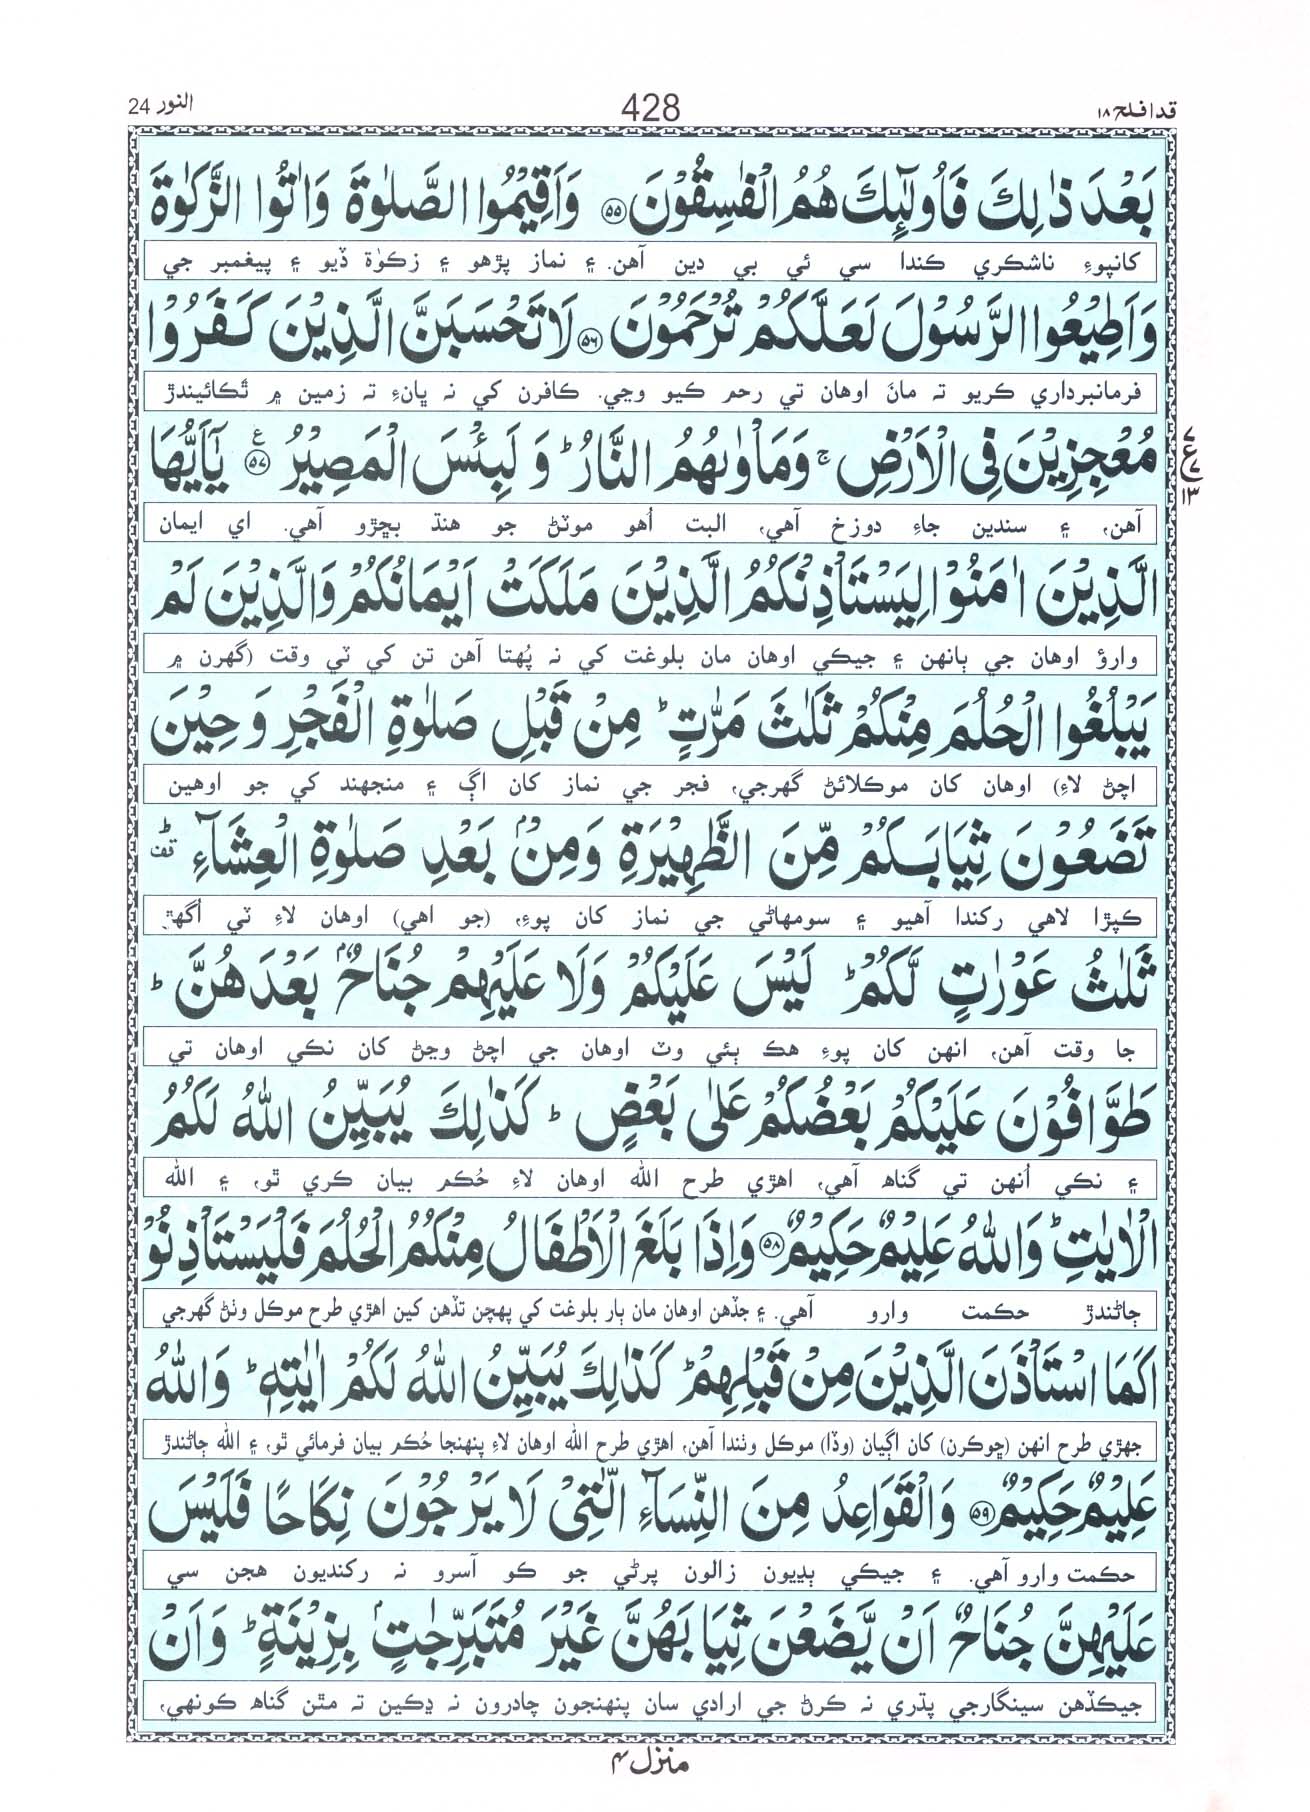 قد افلح ١٨ 428 النور 24
بَعْدَ ذٰلِكَ فَاُولٰٓئِكَ هُمُ الْفٰسِقُوْنَ ﴿۵۵﴾ وَاَقِيْمُوا الصَّلٰوةَ وَاٰتُوا الزَّكٰوةَ
کانپوءِ ناشڪري ڪندا سي ئي بي دين آهن. ۽ نماز پڙهو ۽ زڪوٰة ڏيو ۽ پيغمبر جي
وَاَطِيْعُوا الرَّسُوْلَ لَعَلَّكُمْ تُرْحَمُوْنَ ﴿۵۶﴾ لَا تَحْسَبَنَّ الَّذِيْنَ كَفَرُوْا
فرمانبرداري ڪريو ته مانَ اوهان تي رحم ڪيو وڃي. ڪافرن کي نه ڀانءِ ته زمين ۾ ٿڪائيندڙ
مُعْجِزِيْنَ فِى الْاَرْضِ ۚ وَمَاْوٰىهُمُ النَّارُ ؕ وَلَبِئْسَ الْمَصِيْرُ ﴿۵۷﴾ ع يٰٓاَيُّهَا
٧ ع ٧ ١٣
آهن، ۽ سندين جاءِ دوزخ آهي، البت اُهو موٽڻ جو هنڌ بڇڙو آهي. اي ايمان
الَّذِيْنَ اٰمَنُوْا لِيَسْتَاْذِنْكُمُ الَّذِيْنَ مَلَكَتْ اَيْمَانُكُمْ وَالَّذِيْنَ لَمْ
وارؤ اوهان جي ٻانهن ۽ جيڪي اوهان مان بلوغت کي نه پُهتا آهن تن کي ٽي وقت (گهرن ۾
يَبْلُغُوا الْحُلُمَ مِنْكُمْ ثَلٰثَ مَرّٰتٍ ؕ مِنْ قَبْلِ صَلٰوةِ الْفَجْرِ وَحِيْنَ
اچڻ لاءِ) اوهان کان موڪلائڻ گهرجي، فجر جي نماز کان اڳ ۽ منجهند کي جو اوهين
تَضَعُوْنَ ثِيَابَكُمْ مِّنَ الظَّهِيْرَةِ وَمِنْۢ بَعْدِ صَلٰوةِ الْعِشَآءِ ؕ قف
ڪپڙا لاهي رکندا آهيو ۽ سومهاڻي جي نماز کان پوءِ، (جو اهي) اوهان لاءِ ٽي اُگهڙ
ثَلٰثُ عَوْرٰتٍ لَّكُمْ ؕ لَيْسَ عَلَيْكُمْ وَلَا عَلَيْهِمْ جُنَاحٌۢ بَعْدَهُنَّ ؕ
جا وقت آهن، انهن کان پوءِ هڪ ٻئي وٽ اوهان جي اچڻ وڃڻ کان نڪي اوهان تي
طَوّٰفُوْنَ عَلَيْكُمْ بَعْضُكُمْ عَلٰى بَعْضٍ ؕ كَذٰلِكَ يُبَيِّنُ اللّٰهُ لَكُمُ
۽ نڪي اُنهن تي گناهه آهي، اهڙي طرح الله اوهان لاءِ حُڪم بيان ڪري ٿو، ۽ الله
الْاٰيٰتِ ؕ وَاللّٰهُ عَلِيْمٌ حَكِيْمٌ ﴿۵۸﴾ وَاِذَا بَلَغَ الْاَطْفَالُ مِنْكُمُ الْحُلُمَ فَلْيَسْتَاْذِنُوْ
ڄاڻندڙ حڪمت وارو آهي. ۽ جڏهن اوهان مان ٻار بلوغت کي پهچن تڏهن کين اهڙي طرح موڪل وٺڻ گهرجي
اكَمَا اسْتَاْذَنَ الَّذِيْنَ مِنْ قَبْلِهِمْ ؕ كَذٰلِكَ يُبَيِّنُ اللّٰهُ لَكُمْ اٰيٰتِهٖ ؕ وَاللّٰهُ
جهڙي طرح انهن (ڇوڪرن) کان اڳيان (وڏا) موڪل وٺندا آهن، اهڙي طرح الله اوهان لاءِ پنهنجا حُڪم بيان فرمائي ٿو، ۽ الله ڄاڻندڙ
عَلِيْمٌ حَكِيْمٌ ﴿۵۹﴾ وَالْقَوَاعِدُ مِنَ النِّسَآءِ الّٰتِىْ لَا يَرْجُوْنَ نِكَاحًا فَلَيْسَ
حڪمت وارو آهي. ۽ جيڪي ٻڍيون زالون پرڻي جو ڪو آسرو نه رکنديون هجن سي
عَلَيْهِنَّ جُنَاحٌ اَنْ يَّضَعْنَ ثِيَابَهُنَّ غَيْرَ مُتَبَرِّجٰتٍۢ بِزِيْنَةٍ ؕ وَاَنْ
جيڪڏهن سينگارجي پڌري نه ڪرڻ جي ارادي سان پنهنجون چادرون نه ڍڪين ته مٿن گناهه ڪونهي،
منزل ۴